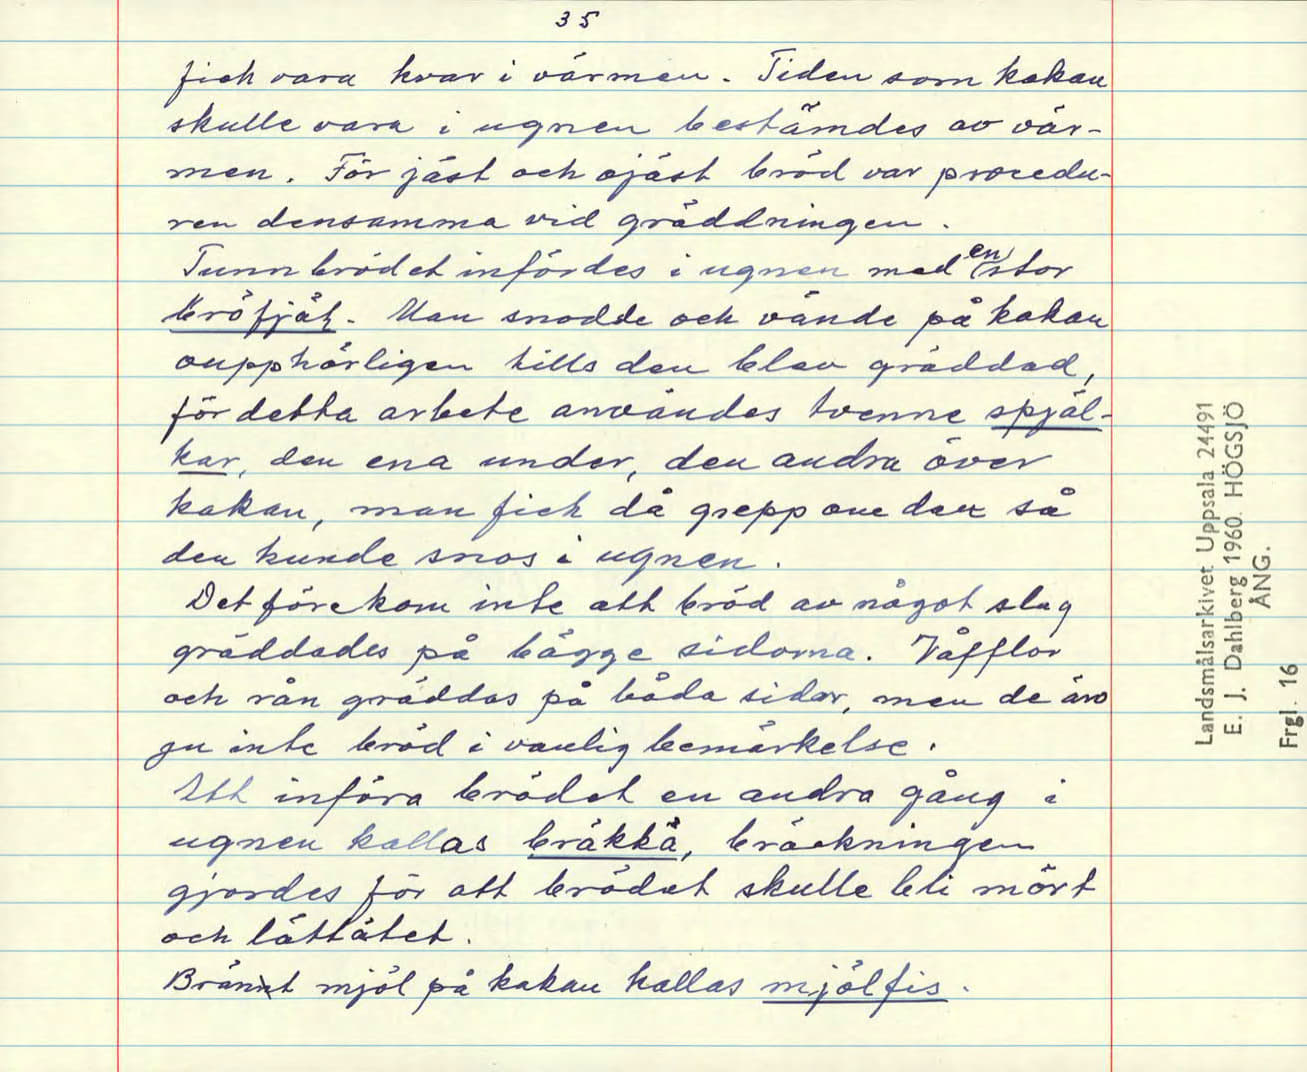 35
fick vara kvar i värmen. Tiden som kakan
skulle vara i ugnen bestämdes av vär-
men. För jäst och ojäst bröd var procedu-
ren densamma vid gräddningen.
Tunnbrödet infördes i ugnen med en stor
bröfjäk. Man snodde och vände på kakan
oupphörligen tills den blev gräddad,
för detta arbete användes tvenne spjäl-
kar, den ena under, den andra över
kakan, man fick då grepp om den så
den kunde snos i ugnen.
Det förekom inte att bröd av något slag
gräddades på bägge sidorna. Våfflor
och rån gräddas på båda sidor, men de äro
ju inte bröd i vanlig bemärkelse.
Att införa brödet en andra gång i
ugnen kallas bräkkä, bräckningen
gjordes för att brödet skulle bli mört
och lättätet.
Bränt mjöl på kakan kallas mjölfis.
Landsmålsarkivet Uppsala 24491
E. J. Dahlberg 1960. HÖGSJÖ
ÅNG.
Frgl. 16